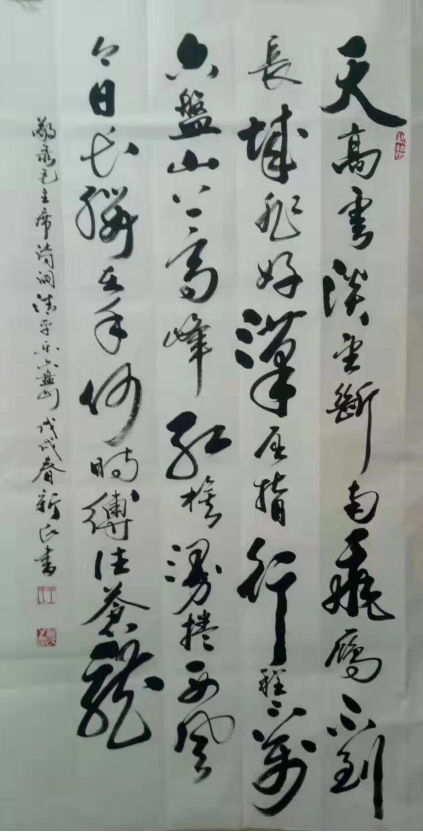 天高雲淡望斷南飛鴈不到
長城非好漢屈指行程二萬
六盤山上高峰紅旗漫捲西風
今日长纓在手何時縛住蒼龍
敬录毛主席詩詞清平乐六盤山 戊戌春新書